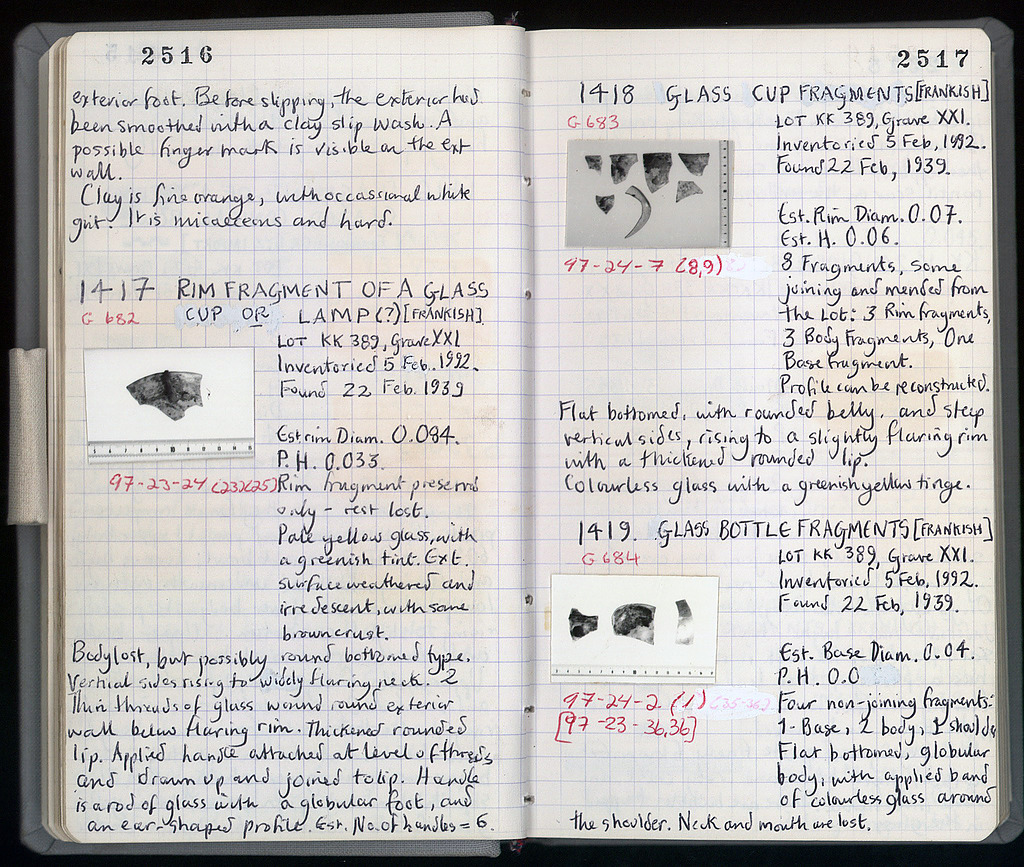 2516
exterior foot. Before slipping, the exterior had
been smoothed with a clay slip wash. A
possible finger mark is visible on the ext
wall.
Clay is fine orange, with occassional white
grit. It is micaceous and hard.
1417 RIM FRAGMENT OF A GLASS
G 682 CUP OR LAMP (?) [FRANKISH]
LOT KK 389, Grave XXI
Inventoried 5 Feb. 1992.
Found 22 Feb. 1939
Est rim Diam. 0.084.
P. H. 0.033.
97-23-24 (23)(25) Rim fragment preserved
only - rest lost.
Pale yellow glass, with
a greenish tint. Ext.
surface weathered and
irredescent, with some
brown crust.
Body lost, but possibly round bottomed type.
Vertical sides rising to widely flaring neck. 2
Thin threads of glass wound round exterior
wall below flaring rim. Thickened rounded
lip. Applied handle attached at level of threads
and drawn up and joined to lip. Handle
is a rod of glass with a globular foot, and
an ear-shaped profile. Est. No. of handles = 6.
2517
1418 GLASS CUP FRAGMENTS [FRANKISH]
G 683
LOT KK 389, Grave XXI.
Inventoried 5 Feb, 1992.
Found 22 Feb, 1939.
Est. Rim Diam. 0.07.
Est. H. 0.06.
97-24-7 (8,9)
8 Fragments, some
joining and mended from
the Lot: 3 Rim fragments,
3 Body Fragments, One
Base fragment.
Profile can be reconstructed.
Flat bottomed, with rounded belly, and steep
vertical sides, rising to a slightly flaring rim
with a thickened rounded lip.
Colourless glass with a greenish yellow tinge.
1419. GLASS BOTTLE FRAGMENTS [FRANKISH]
G 684
LOT KK 389, Grave XXI.
Inventoried 5 Feb, 1992.
Found 22 Feb, 1939.
Est. Base Diam. 0.04.
P. H. 0.0
97-24-2 (1)
[97-23-36,36]
Four non-joining fragments:
1-Base, 2 body, 1 shoulder
Flat bottomed, globular
body, with applied band
of colourless glass around
the shoulder. Neck and mouth are lost.